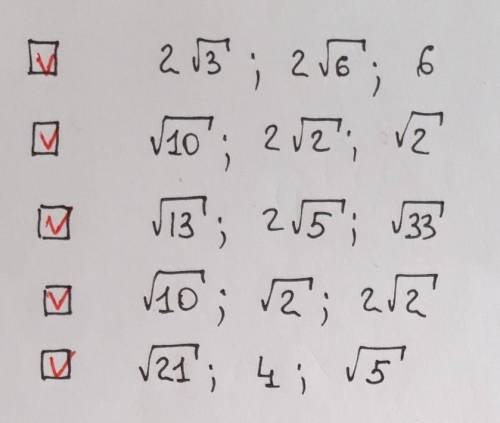 ☑ 2√3; 2√6; 6
☑ √10; 2√2; √2
☑ √13; 2√5; √33
☑ √10; √2; 2√2
☑ √21; 4; √5